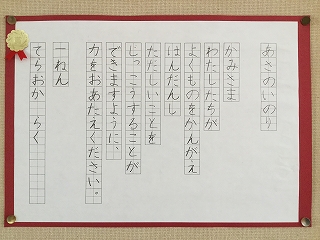 あさのいのり
かみさま
わたしたちが
よくものをかんがえ
はんだんし
ただしいことを
じっこうすることが
できますように、
力をおあたえください。
一ねん
てらおか らく